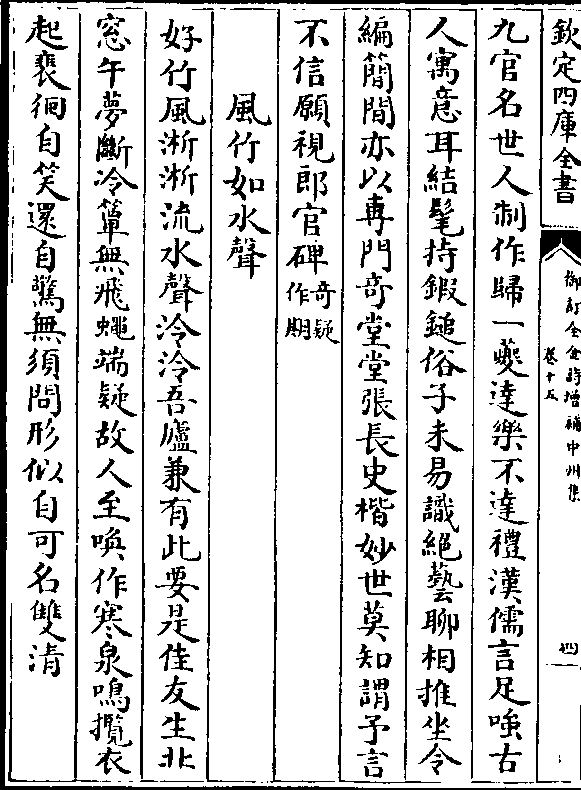 欽定四庫全書
御訂全金詩增補中州集
卷十五
四
九官名世人制作歸一夔達樂不達禮漢儒言足嗤古
人寓意耳結髦持鍛鎚俗子未易識絕藝聊相推坐令
編簡間亦以專門奇堂堂張長史楷妙世莫知謂予言
不信願視郎官碑奇疑作期
風竹如水聲
好竹風淅淅流水聲泠泠吾廬兼有此要是佳友生北
窓午夢斷冷簟無飛蠅端疑故人至喚作寒泉鳴攬衣
起裴徊自笑還自驚無須問形似自可名雙清